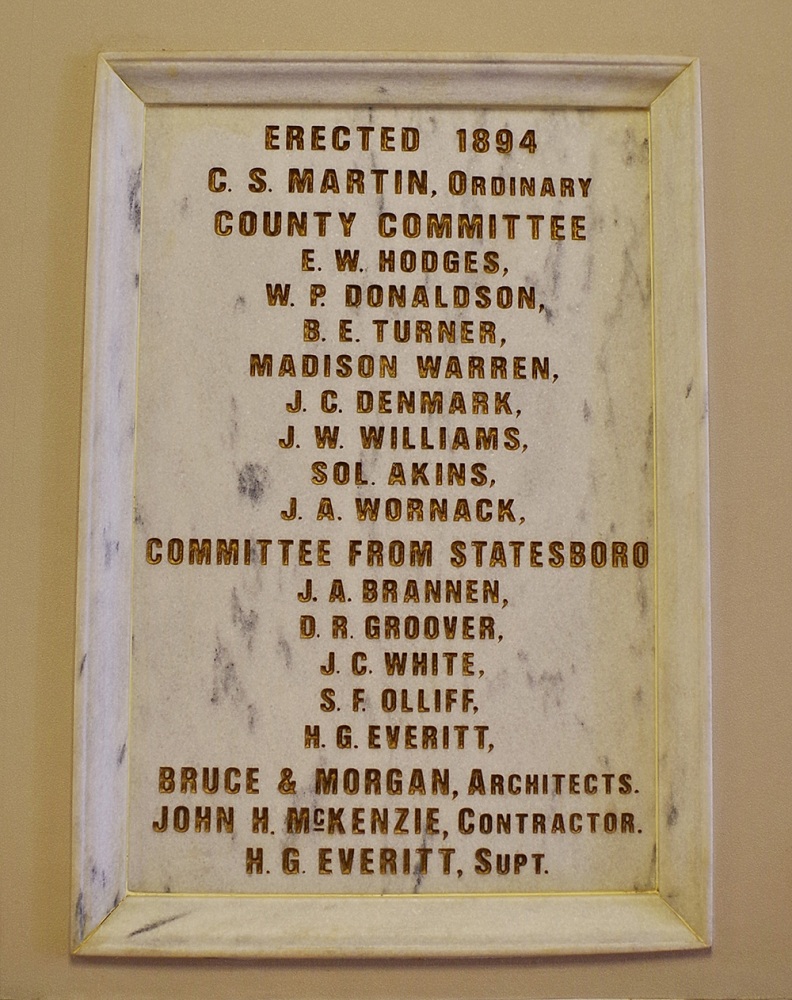 ERECTED 1894
C. S. MARTIN, ORDINARY
COUNTY COMMITTEE
E. W. HODGES,
W. P. DONALDSON,
B. E. TURNER,
MADISON WARREN,
J. C. DENMARK,
J. W. WILLIAMS,
SOL. AKINS,
J. A. WORNACK,
COMMITTEE FROM STATESBORO
J. A. BRANNEN,
D. R. GROOVER,
J. C. WHITE,
S. F. OLLIFF,
H. G. EVERITT,
BRUCE & MORGAN, ARCHITECTS.
JOHN H. McKENZIE, CONTRACTOR.
H. G. EVERITT, SUPT.